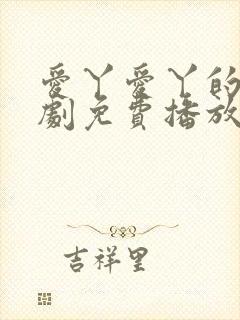 爱丫爱丫的
劇免費播放
吉祥里